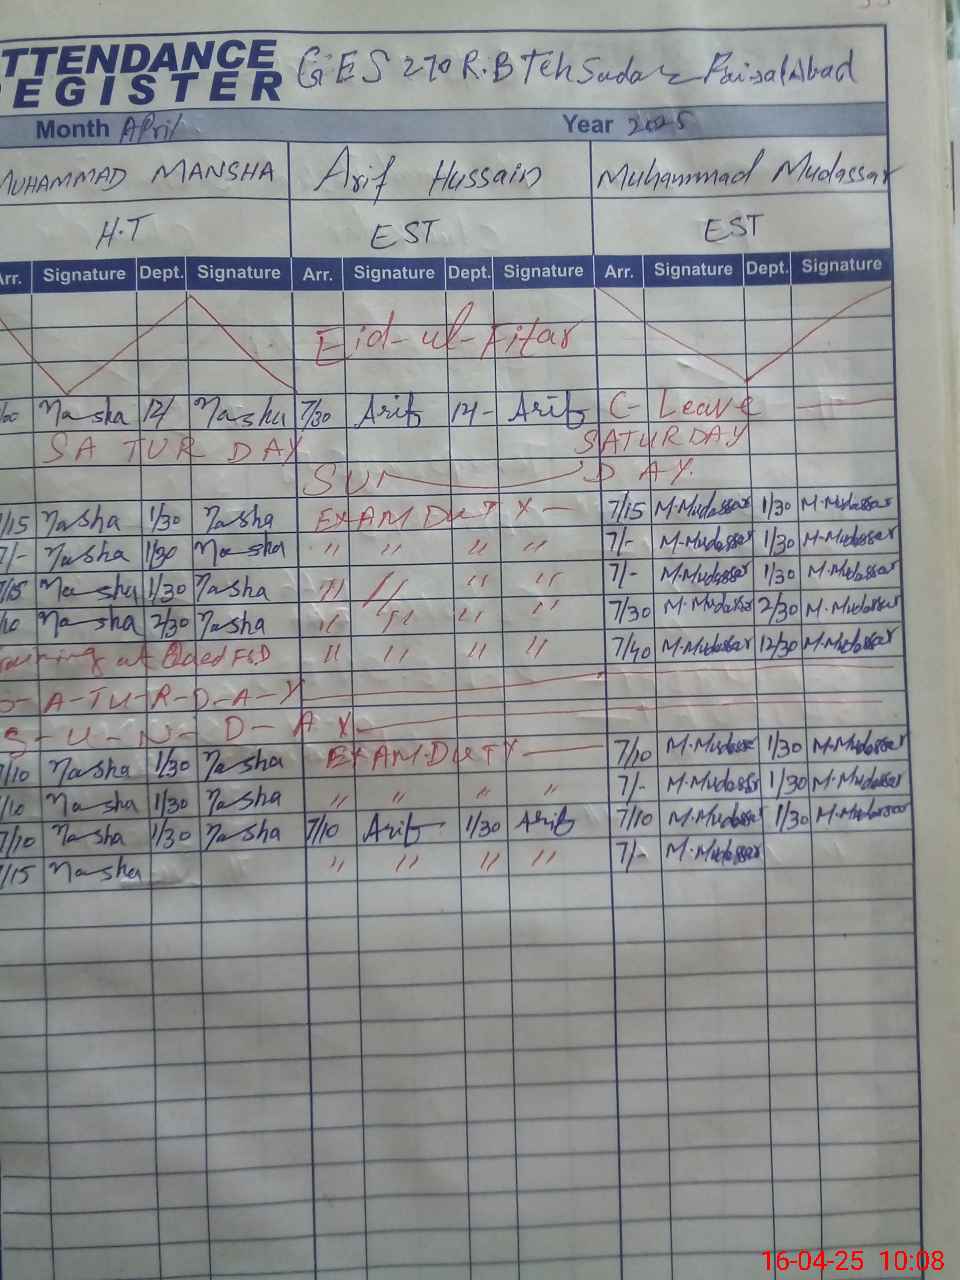 ATTENDANCE
REGISTER GES 270 R.B Teh Sadar Faisalabad
Month April Year 2025
MUHAMMAD MANSHA Arif Hussain Muhammad Mudassar
H.T EST EST
Arr. Signature Dept. Signature Arr. Signature Dept. Signature Arr. Signature Dept. Signature
Eid-ul-Fitar
Masha 12/ Masha 7/30 Arif 12- Arif C- Leave
SATURDAY SATURDAY
SUN DAY.
7/15 Masha 1/30 Masha EXAM DUTY - 7/15 M.Mudassar 1/30 M.Mudassar
7/- Masha 1/30 Masha " " " " 7/- M.Mudassar 1/30 M.Mudassar
7/15 Masha 1/30 Masha " " " " 7/- M.Mudassar 1/30 M.Mudassar
Masha 2/30 Masha " " " " 7/30 M.Mudassar 2/30 M.Mudassar
at FSD " " " " 7/40 M.Mudassar 12/30 M.Mudassar
S-A-TU-R-D-A-Y
S-U-N-D-A Y
7/10 Masha 1/30 Masha EXAM DUTY 7/10 M.Mudassar 1/30 M.Mudassar
7/10 Masha 1/30 Masha " " " " 7/- M.Mudassar 1/30 M.Mudassar
7/10 Masha 1/30 Masha 7/10 Arif 1/30 Arif 7/10 M.Mudassar 1/30 M.Mudassar
7/15 Masha " " " " 7/- M.Mudassar
16-04-25 10:08